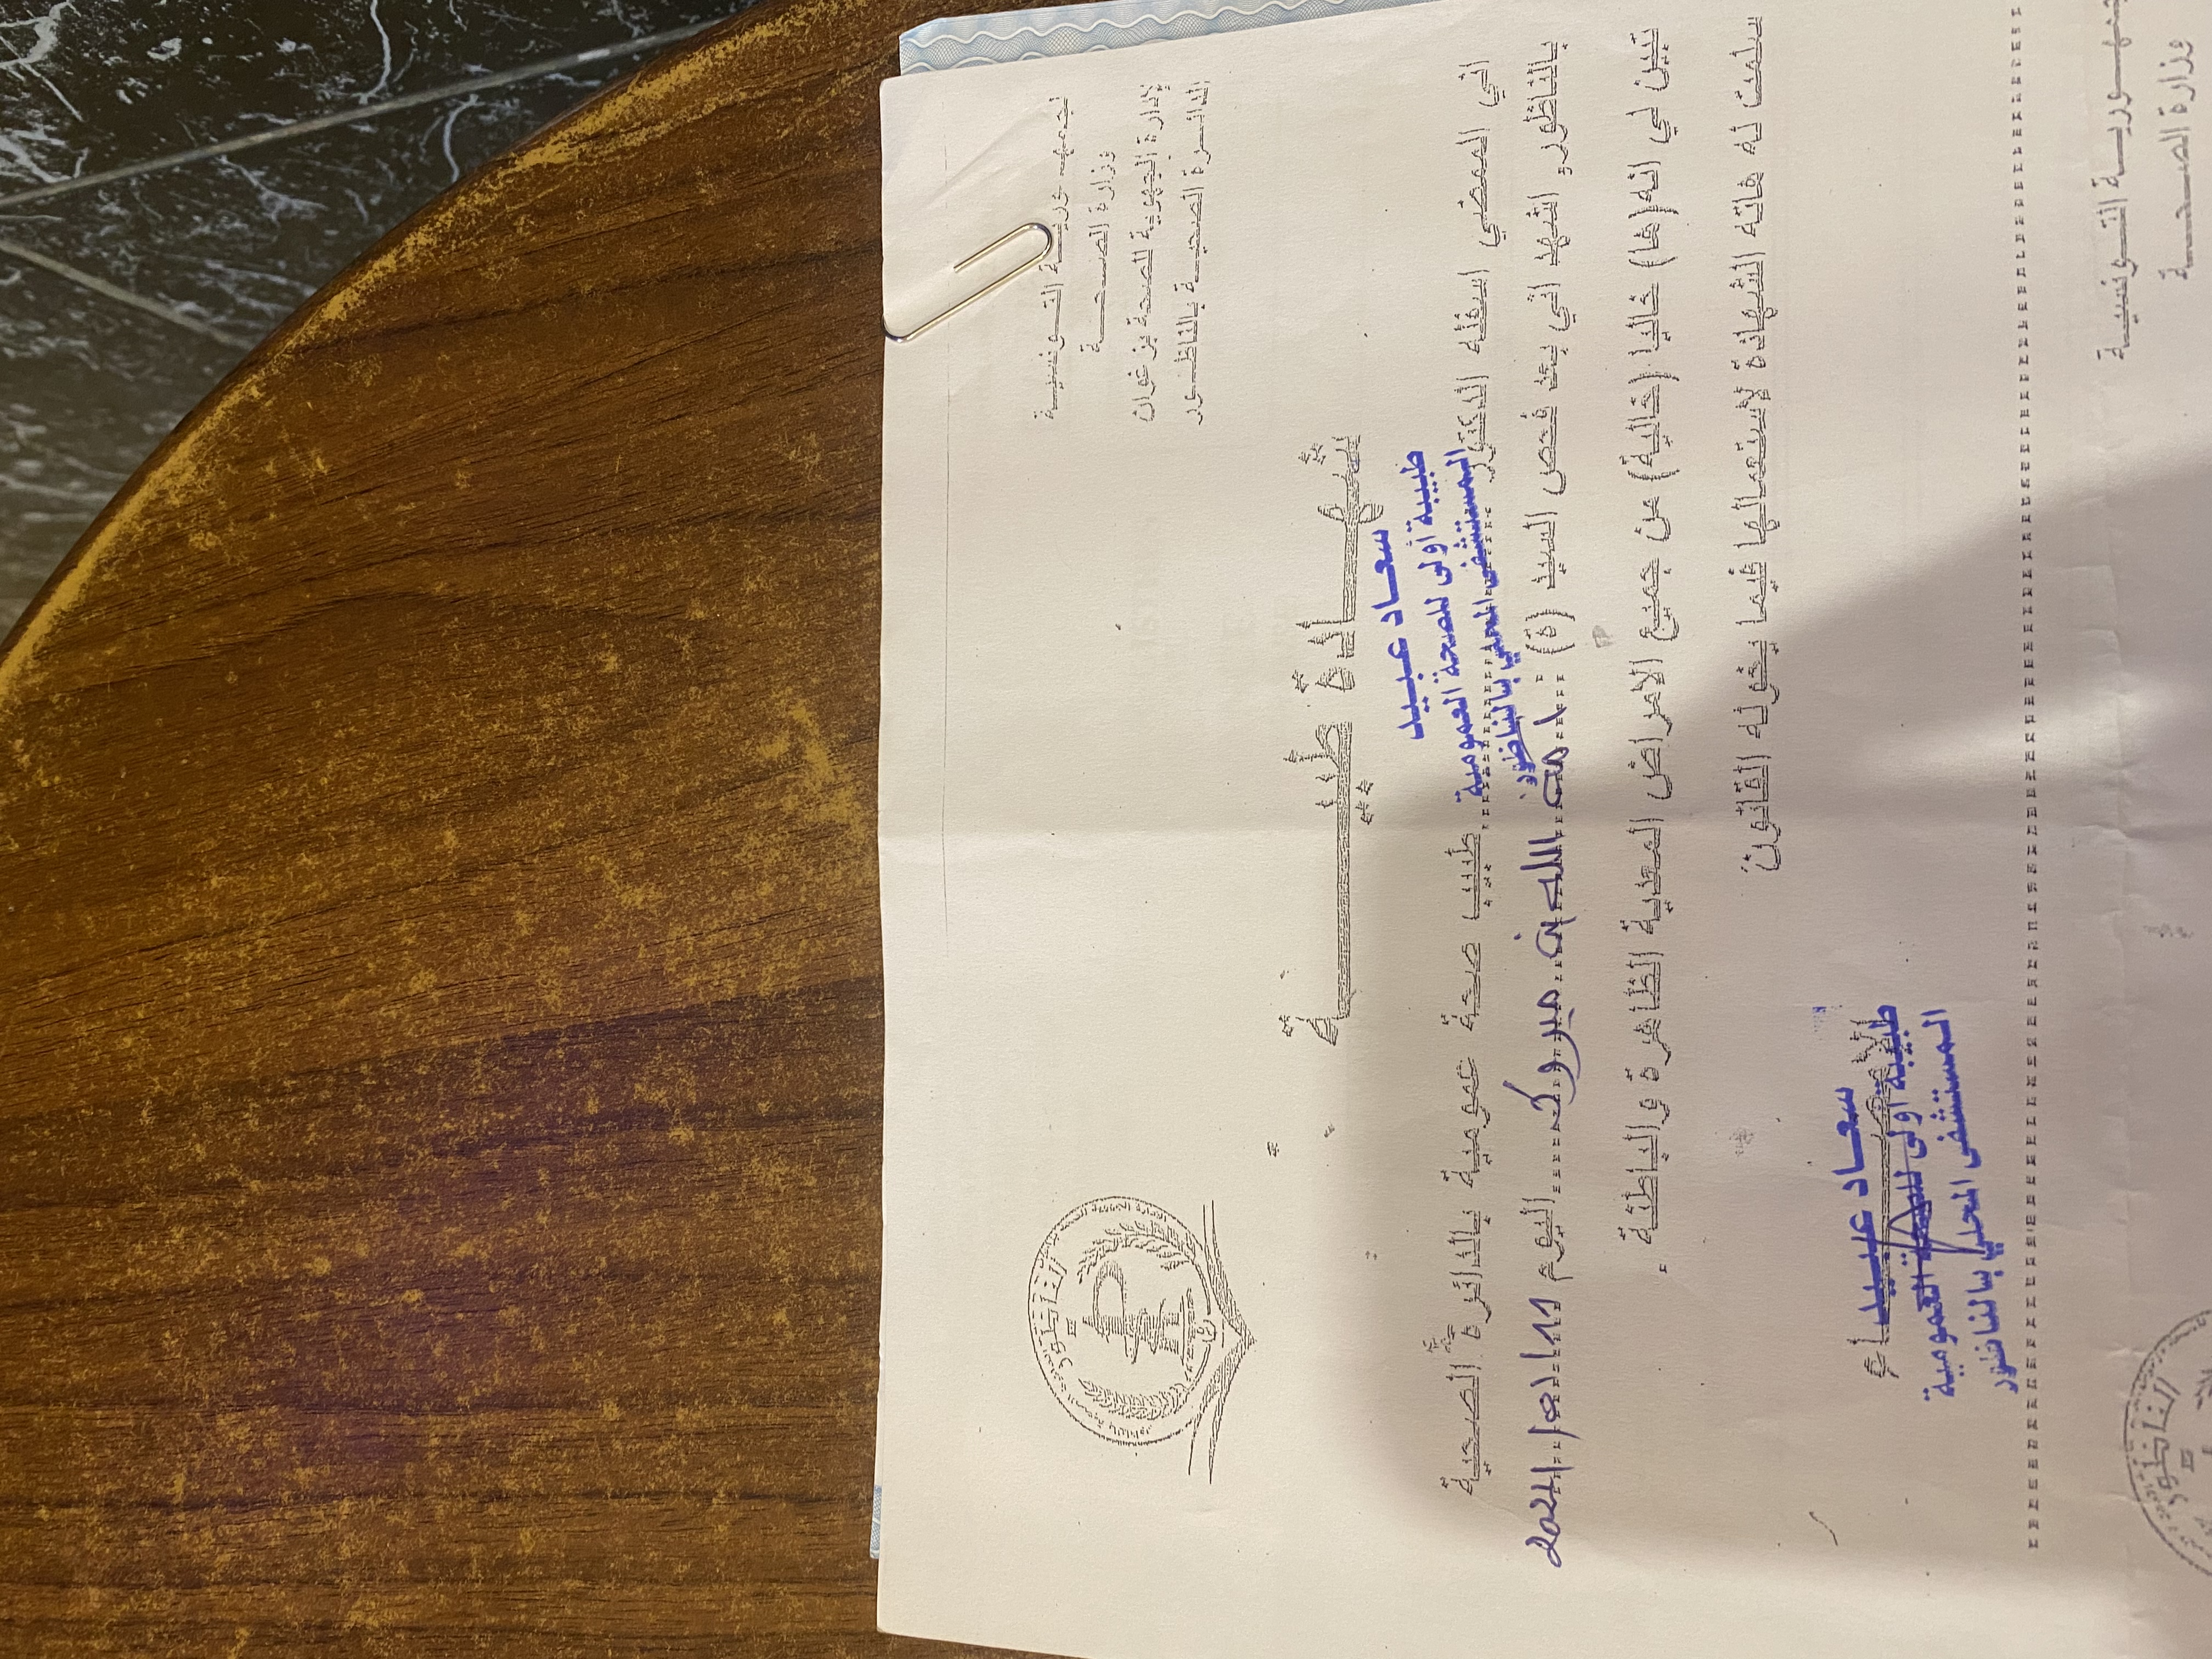 الجمهورية التونسية
وزارة الصحة
الإدارة الجهوية للصحة بزغوان
الدائرة الصحية بالناظور
الناظور
شهادة طبية
سعاد عبيد
طبيبة أولى للصحة العمومية
المستشفى المحلي بالناظور
اني الممضي اسفله الدكتور طبيب صحة عمومية بالدائرة الصحية
بالناظور، اشهد اني بعد فحص السيد (ة) : أمة الله بن مبروك اليوم 2021
تبين لي انه(ها) خاليا (خالية) من جميع الامراض المعدية الظاهرة والباطنة
سلمت له هاته الشهادة لاستعمالها فيما يخوله القانون
الإمضاء
سعاد عبيد
طبيبة أولى للصحة العمومية
المستشفى المحلي بالناظور
الجمهورية التونسية
وزارة الصحة
الناظور